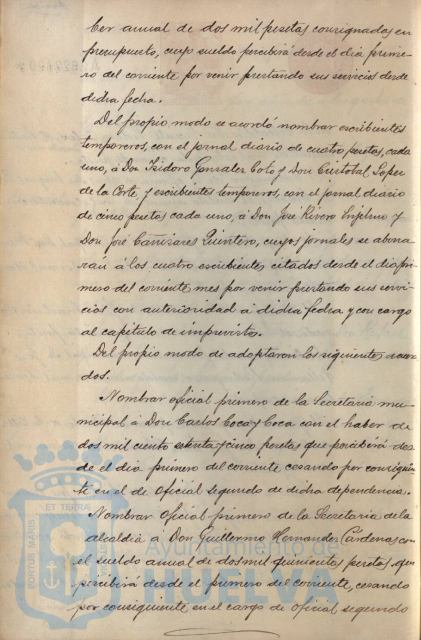 ber anual de dos mil pesetas consignadas en
presupuesto, cuyo sueldo percibirá desde el dia prime-
ro del corriente por venir prestando sus servicios desde
dicha fecha.
Del propio modo se acordó nombrar escribientes
temporeros, con el jornal diario de cuatro pesetas, cada
uno, á Don Isidoro Gonzalez Coto y Don Cristobal Lopez
de la Corte y escribientes temporeros, con el jornal diario
de cinco pesetas cada uno, á Don José Rivero y
Don José Cañizares Quintero, cuyos jornales se abona-
rán á los cuatro escribientes citados desde el dia pri-
mero del corriente mes por venir prestando sus servi-
cios con anterioridad á dicha fecha y con cargo
al capitulo de imprevistos.
Del propio modo de adoptaron los siguientes acuer-
dos.
Nombrar oficial primero de la Secretaria mu-
nicipal á Don Carlos Coca y Coca con el haber de
dos mil ciento setenta y cinco pesetas que percibirá des-
de el dia primero del corriente cesando por consiguien-
te en el de Oficial segundo de dicha dependencia.
Nombrar Oficial primero de la Secretaria de la
alcaldia á Don Guillermo Hernandez Cárdenas con
el sueldo anual de dos mil quinientas pesetas que
percibirá desde el primero del corriente, cesando
por consiguiente en el cargo de Oficial segundo
ET TERRA
PORTUS MARIS
Ayuntamiento de
HUELVA